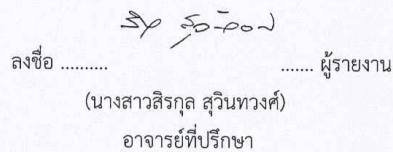 ลงชื่อ .......... ....... ผู้รายงาน
(นางสาวสิรกุล สุวินทวงศ์)
อาจารย์ที่ปรึกษา